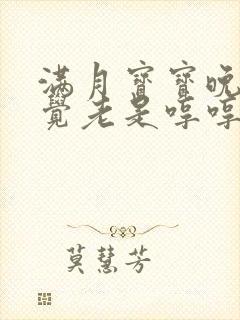 满月寶寶晚
覺老是哼哼
莫慧芳